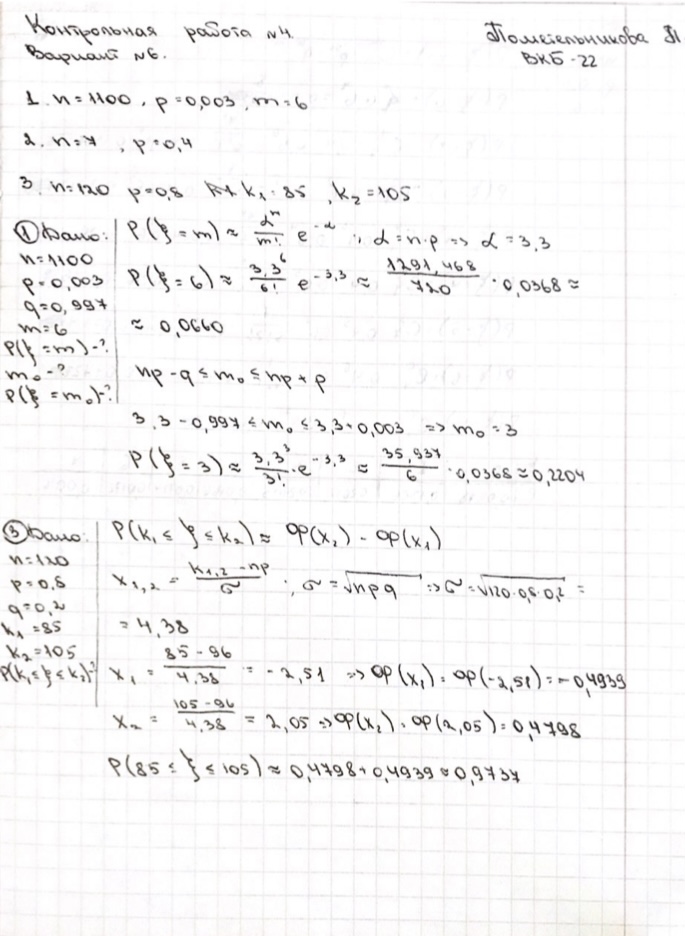 Контрольная работа №4. Пометельникова П
Вариант №6. ВКБ-22
1. n=1100, p=0,003, m=6
2. n=7, p=0,4
3. n=120 p=0,8 k₁=85, k₂=105
① Дано:
n=1100
p=0,003
q=0,997
m=6
P(ξ=m)-?
m₀-?
P(ξ=m₀)-?
P(ξ=m) ≈ αᵐ/m! e^-α ; α=n·p => α=3,3
P(ξ=6) ≈ 3,3⁶/6! e^-3,3 ≈ 1291,468/720 · 0,0368 ≈
≈ 0,0660
np-q ≤ m₀ ≤ np+p
3,3-0,997 ≤ m₀ ≤ 3,3+0,003 => m₀=3
P(ξ=3) ≈ 3,3³/3! · e^-3,3 ≈ 35,937/6 · 0,0368 ≈ 0,2204
③ Дано:
n=120
p=0,8
q=0,2
k₁=85
k₂=105
P(k₁≤ξ≤k₂)-?
P(k₁ ≤ ξ ≤ k₂) ≈ Φ(x₂) - Φ(x₁)
x₁,₂ = (k₁,₂ - np)/σ ; σ=√npq => σ=√120·0,8·0,2 =
= 4,38
x₁ = (85-96)/4,38 = -2,51 => Φ(x₁) = Φ(-2,51) = -0,4939
x₂ = (105-96)/4,38 = 2,05 => Φ(x₂) = Φ(2,05) = 0,4798
P(85 ≤ ξ ≤ 105) ≈ 0,4798+0,4939 ≈ 0,9737